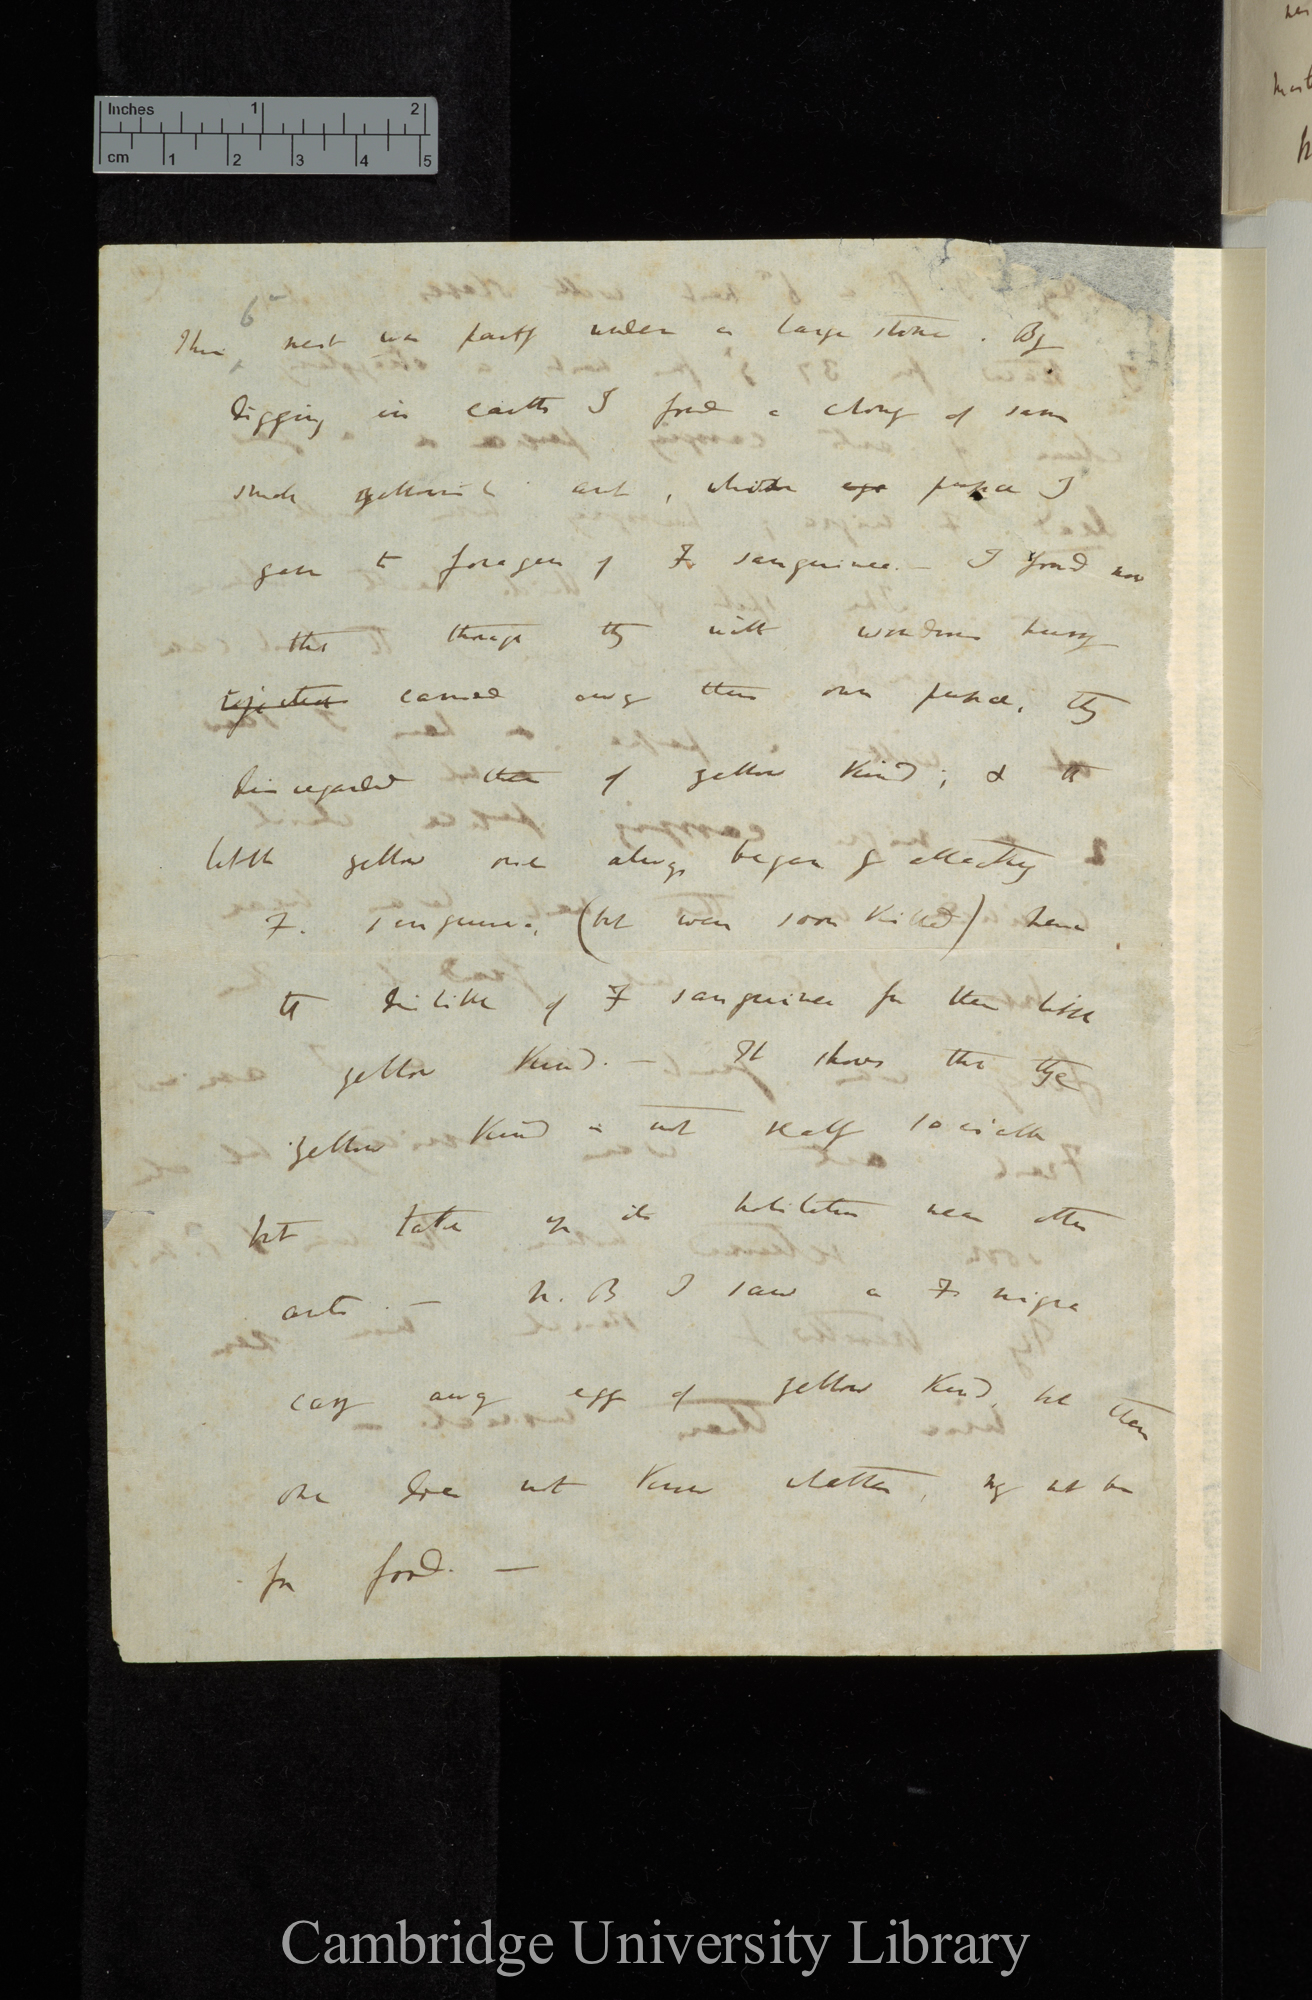 Inches 1 2
cm 1 2 3 4 5
6th
This nest was partly under a large stone. By
digging in earth I found a colony of same
small yellowish ant, whose pupæ I
gave to foragers of F. sanguinea. — I found now
that though they with wondrous hurry
carried away their own pupæ, they
disregarded those of yellow kind; & the
little yellow one always began by attacking
F. sanguinea, (but was soon killed) hence
the dislike of F sanguinea for the little
yellow kind. — It shows that the
yellow kind is not really sociable
but takes up its habitation near other
ants. — N.B I saw a F. nigra
carry away eggs of yellow kind, but then
one does not know whether, may not be
for food. —
Cambridge University Library